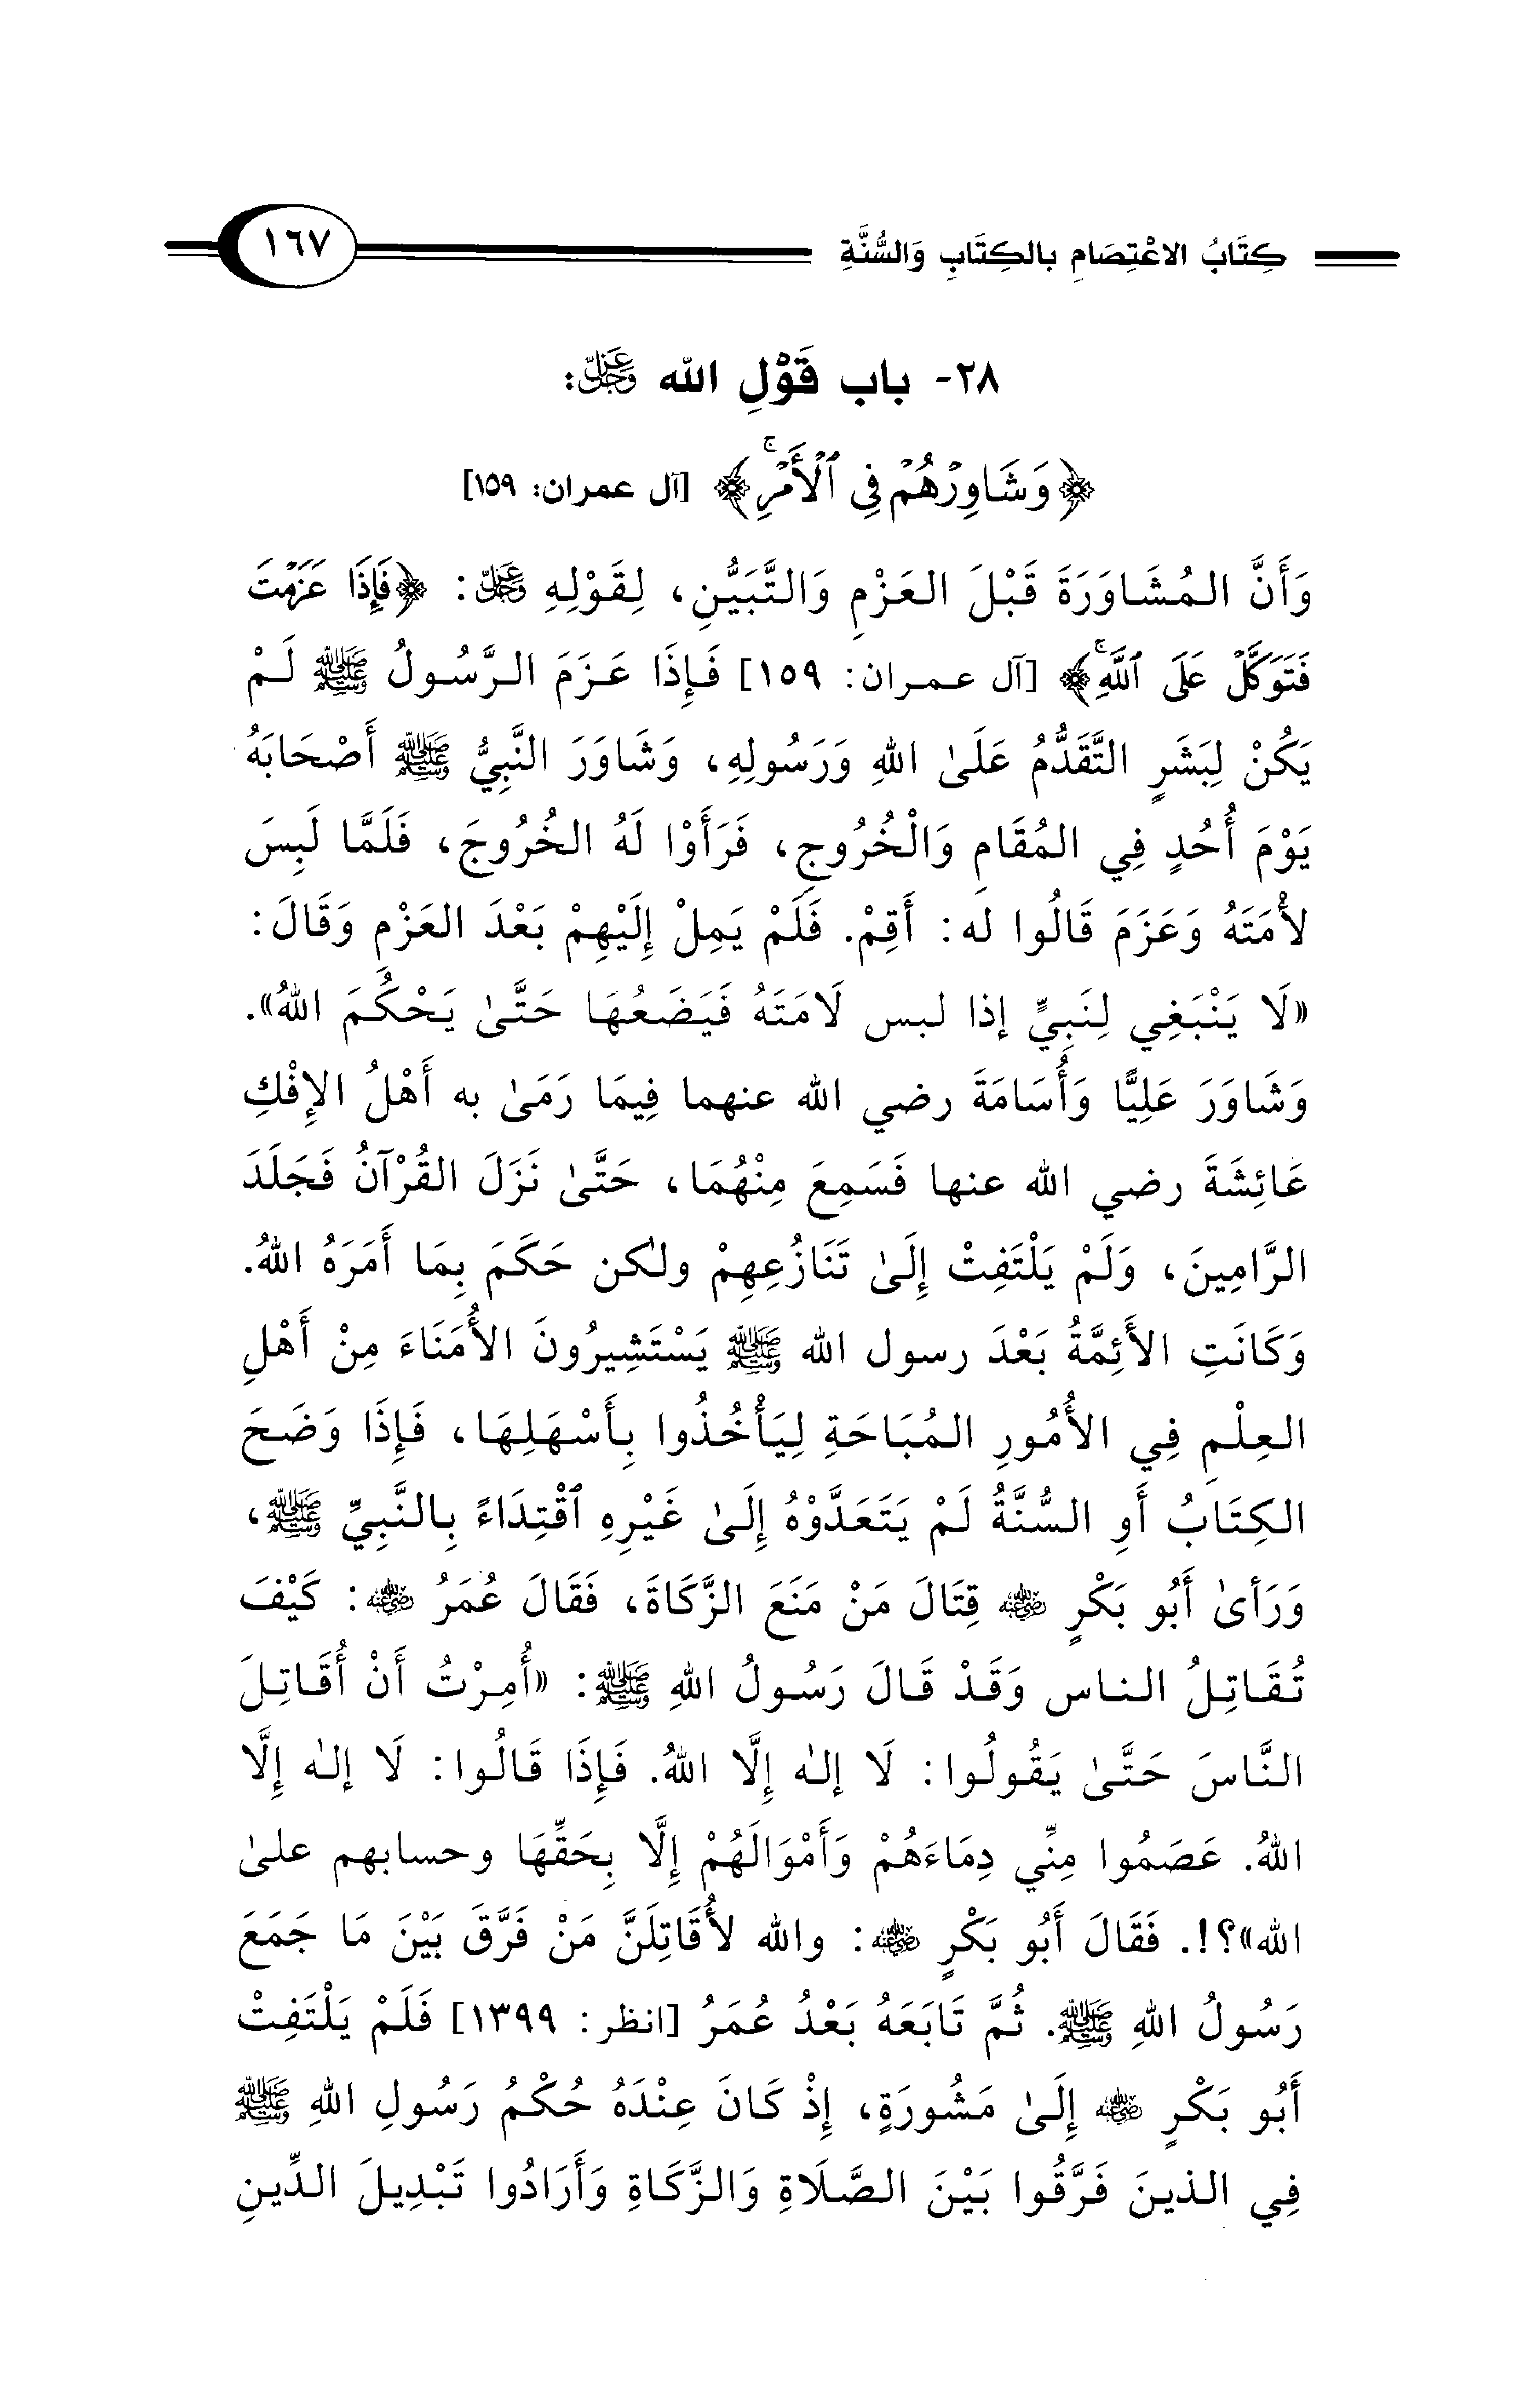 كِتَابُ الاعْتِصَامِ بالكِتَابِ وَالسُّنَّةِ ١٦٧
٢٨- باب قَوْلِ الله عَزَّ وَجَلَّ:
﴿وَشَاوِرْهُمْ فِي ٱلْأَمْرِۚ﴾ [آل عمران: ١٥٩]
وَأَنَّ المُشَاوَرَةَ قَبْلَ العَزْمِ وَالتَّبَيُّنِ، لِقَوْلِهِ عَزَّ وَجَلَّ: ﴿فَإِذَا عَزَمْتَ
فَتَوَكَّلْ عَلَى ٱللَّهِۚ﴾ [آل عمران: ١٥٩] فَإِذَا عَزَمَ الرَّسُولُ ﷺ لَمْ
يَكُنْ لِبَشَرٍ التَّقَدُّمُ عَلَىٰ اللهِ وَرَسُولِهِ، وَشَاوَرَ النَّبِيُّ ﷺ أَصْحَابَهُ
يَوْمَ أُحُدٍ فِي المُقَامِ وَالْخُرُوجِ، فَرَأَوْا لَهُ الخُرُوجَ، فَلَمَّا لَبِسَ
لأْمَتَهُ وَعَزَمَ قَالُوا له: أَقِمْ. فَلَمْ يَمِلْ إِلَيْهِمْ بَعْدَ العَزْمِ وَقَالَ:
«لَا يَنْبَغِي لِنَبِيٍّ إذا لبس لَامَتَهُ فَيَضَعُهَا حَتَّىٰ يَحْكُمَ اللهُ».
وَشَاوَرَ عَلِيًّا وَأُسَامَةَ رضي الله عنهما فِيمَا رَمَىٰ به أَهْلُ الإِفْكِ
عَائِشَةَ رضي الله عنها فَسَمِعَ مِنْهُمَا، حَتَّىٰ نَزَلَ القُرْآنُ فَجَلَدَ
الرَّامِينَ، وَلَمْ يَلْتَفِتْ إِلَىٰ تَنَازُعِهِمْ ولٰكن حَكَمَ بِمَا أَمَرَهُ اللهُ.
وَكَانَتِ الأَئِمَّةُ بَعْدَ رسول الله ﷺ يَسْتَشِيرُونَ الأُمَنَاءَ مِنْ أَهْلِ
العِلْمِ فِي الأُمُورِ المُبَاحَةِ لِيَأْخُذُوا بِأَسْهَلِهَا، فَإِذَا وَضَحَ
الكِتَابُ أَوِ السُّنَّةُ لَمْ يَتَعَدَّوْهُ إِلَىٰ غَيْرِهِ ٱقْتِدَاءً بِالنَّبِيِّ ﷺ،
وَرَأىٰ أَبُو بَكْرٍ رضي الله عنه قِتَالَ مَنْ مَنَعَ الزَّكَاةَ، فَقَالَ عُمَرُ رضي الله عنه: كَيْفَ
تُقَاتِلُ الناس وَقَدْ قَالَ رَسُولُ اللهِ ﷺ: «أُمِرْتُ أَنْ أُقَاتِلَ
النَّاسَ حَتَّىٰ يَقُولُوا: لَا إلٰه إِلَّا اللهُ. فَإِذَا قَالُوا: لَا إلٰه إِلَّا
اللهُ. عَصَمُوا مِنِّي دِمَاءَهُمْ وَأَمْوَالَهُمْ إِلَّا بِحَقِّهَا وحسابهم علىٰ
الله»؟!. فَقَالَ أَبُو بَكْرٍ رضي الله عنه: والله لأُقَاتِلَنَّ مَنْ فَرَّقَ بَيْنَ مَا جَمَعَ
رَسُولُ اللهِ ﷺ. ثُمَّ تَابَعَهُ بَعْدُ عُمَرُ [انظر: ١٣٩٩] فَلَمْ يَلْتَفِتْ
أَبُو بَكْرٍ رضي الله عنه إِلَىٰ مَشُورَةٍ، إِذْ كَانَ عِنْدَهُ حُكْمُ رَسُولِ اللهِ ﷺ
فِي الذينَ فَرَّقُوا بَيْنَ الصَّلَاةِ وَالزَّكَاةِ وَأَرَادُوا تَبْدِيلَ الدِّينِ